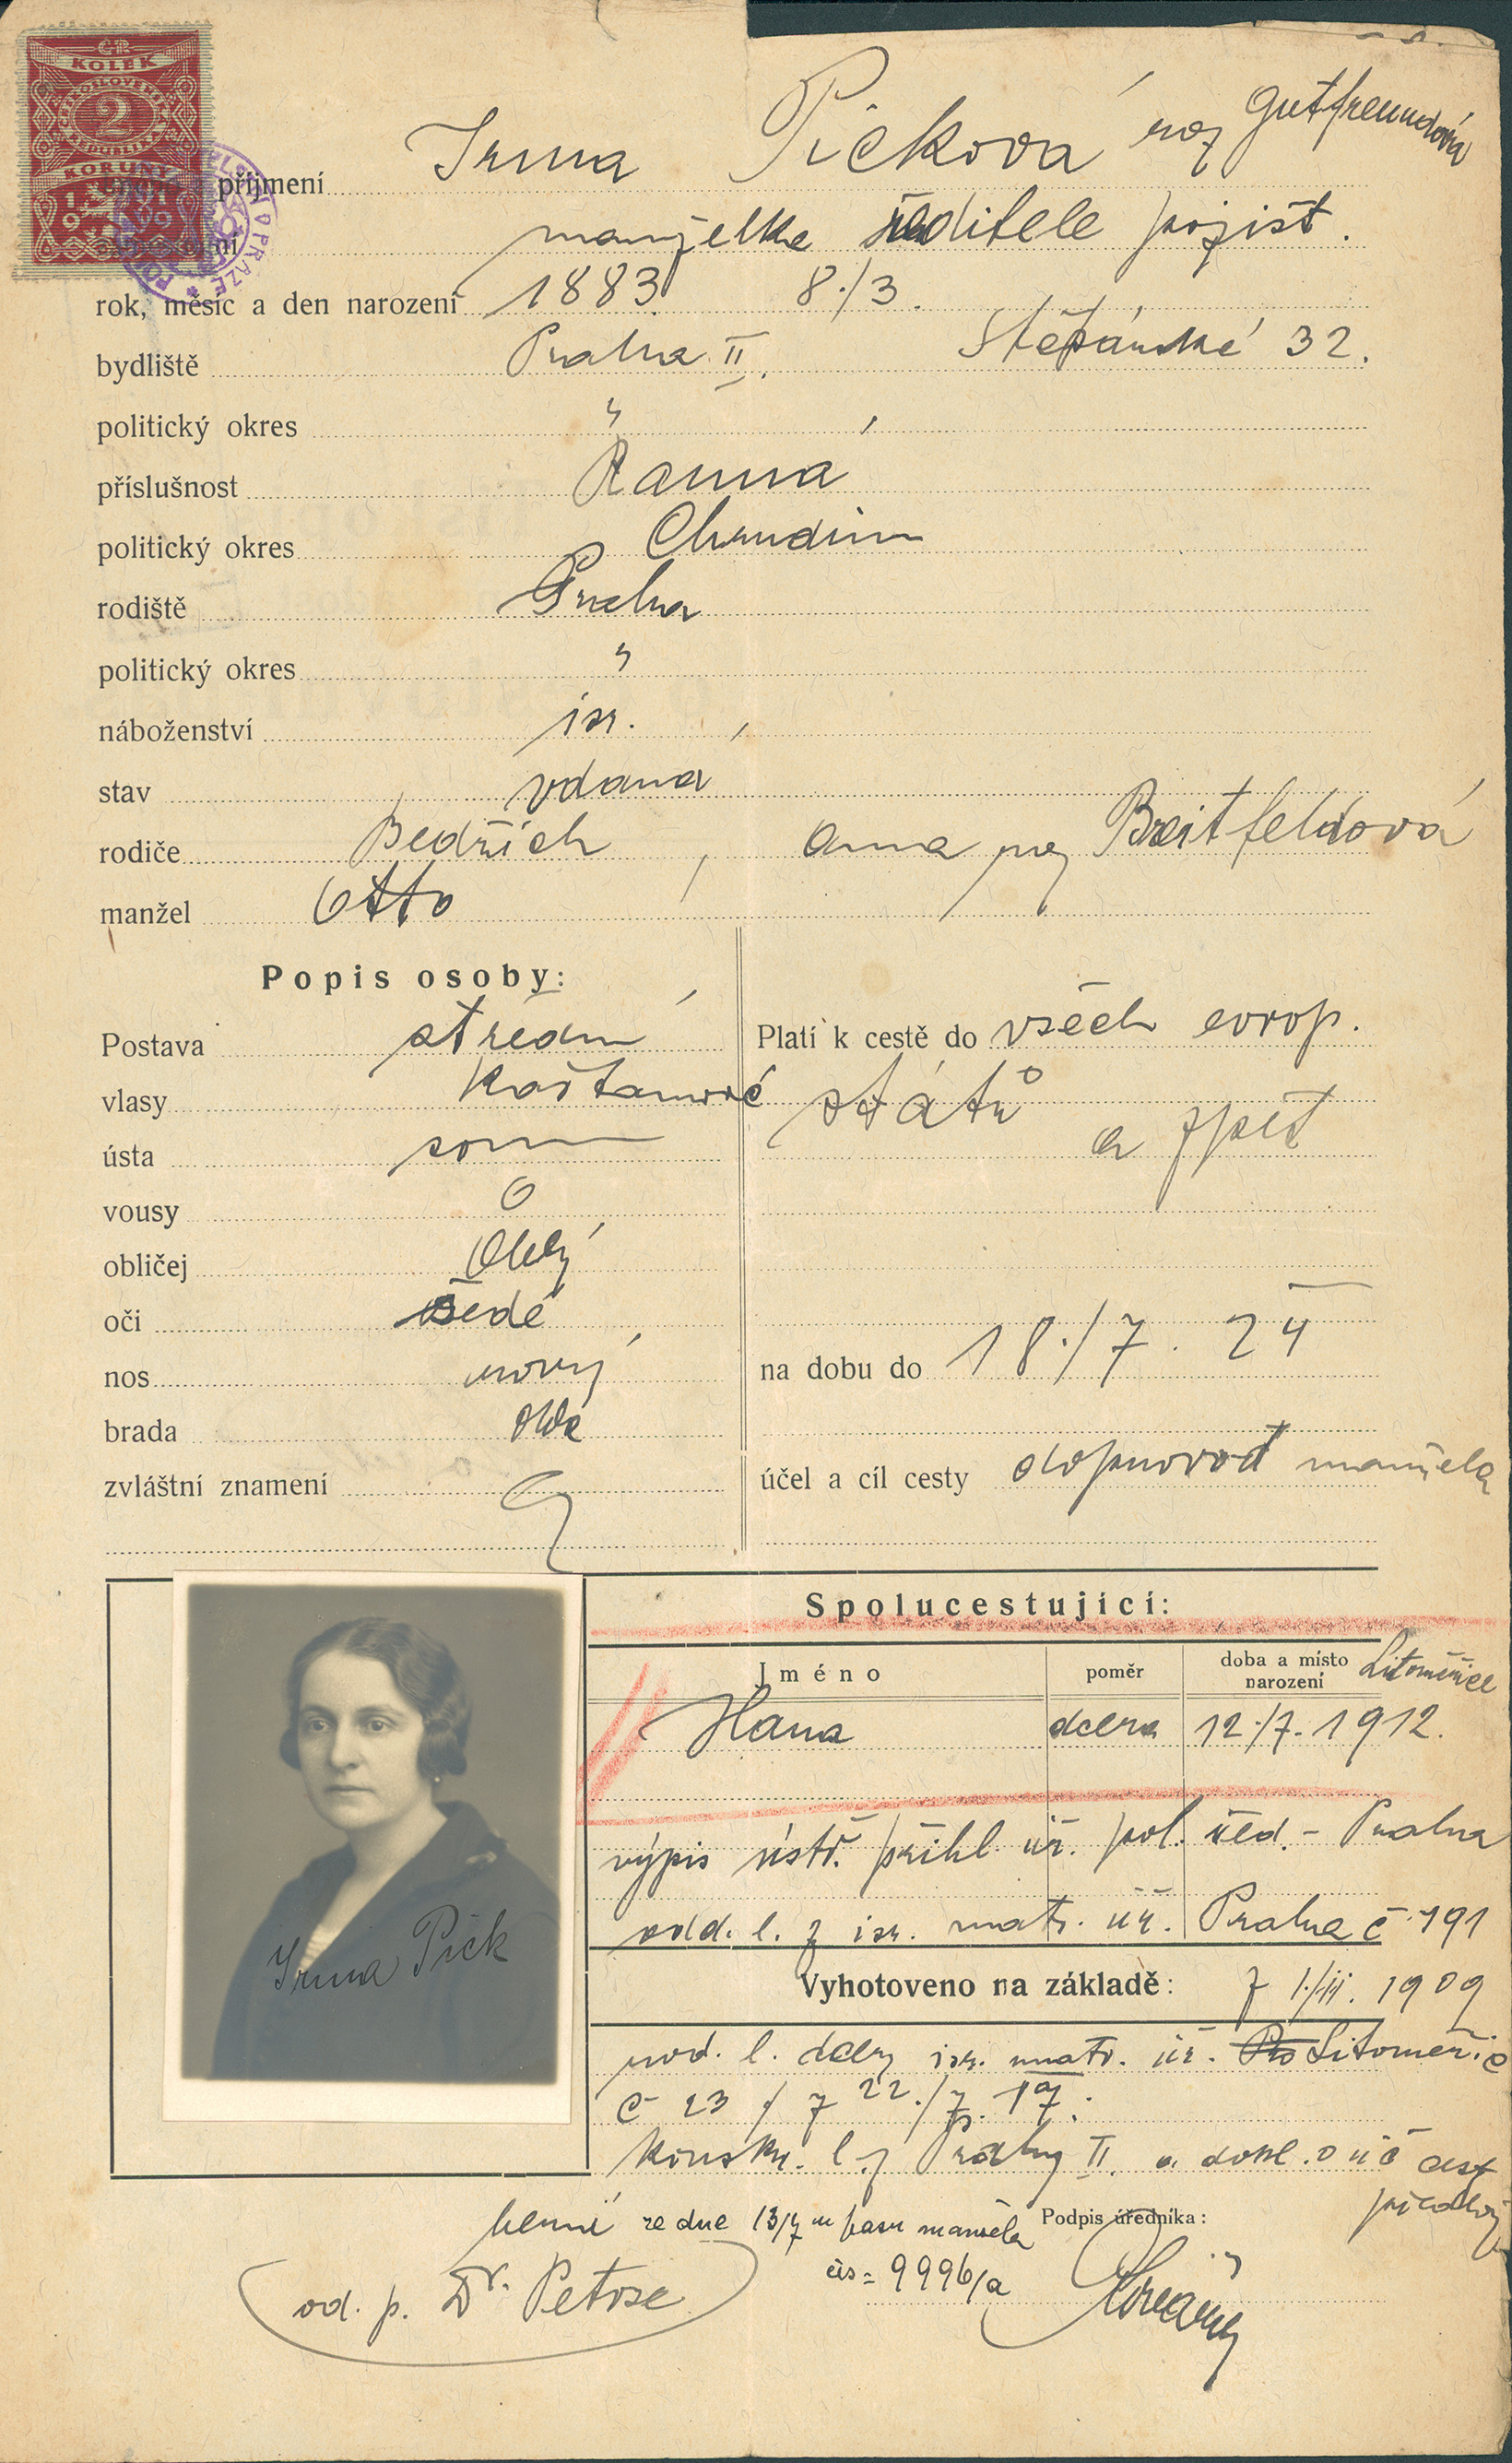 ČR
KOLEK
2
KORUNY
1919
příjmení Irma Picková roz Gutfreundová
manželka ředitele pojišt.
rok, měsíc a den narození 1883. 8./3.
bydliště Praha II. Štěpánská 32.
politický okres "
příslušnost Ranná
politický okres Chrudim
rodiště Praha
politický okres "
náboženství isr.
stav vdaná
rodiče Bedřich, Anna roz Breitfeldová
manžel Otto
Popis osoby:
Postava střední
vlasy kaštanové
ústa souměr
vousy 0
obličej oblý
oči šedé
nos rovný
brada oblá
zvláštní znamení 0
Platí k cestě do všech evrop.
států a zpět
na dobu do 18./7. 24
účel a cíl cesty doprovod manžela
Spolucestující:
Jméno poměr doba a místo narození Litoměřice
Hana dcera 12./7. 1912.
výpis ústř. přihl. úř. pol. řed. - Praha
odd. l. z isr. matr. úř. Praha č 191
Vyhotoveno na základě: z 1909
rod. l. dcery isr. matr. úř. Litoměřice
č 23 z 22./7. 17.
konskr. l. z Prahy II. a dokl. o úč cest
ze dne 13/7 pasu manžela
Podpis úředníka:
čís = 9996/a
od. p. Dr. Petrse
Irma Pick